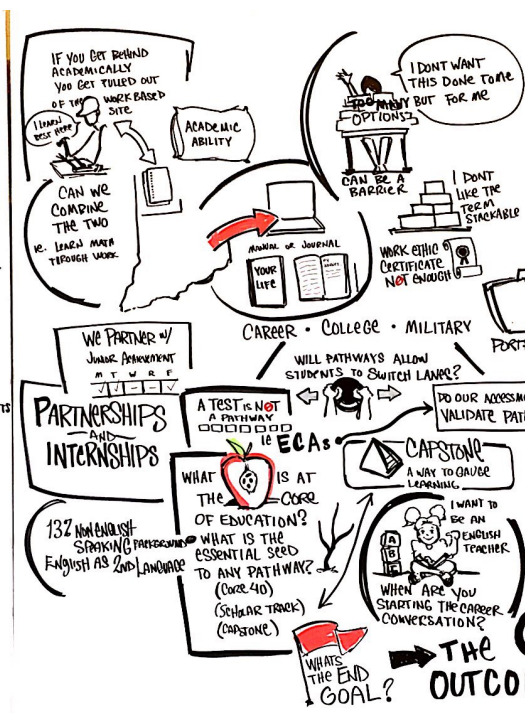 IF YOU GET BEHIND
ACADEMICALLY
YOU GET PULLED OUT
OF THE WORK BASED
SITE
I LEARN
BEST HERE
ACADEMIC
ABILITY
CAN WE
COMBINE
THE TWO
ie. LEARN MATH
THROUGH WORK
MANUAL OR JOURNAL
YOUR
LIFE
I DONT WANT
THIS DONE TO ME
BUT FOR ME
TOO MANY
OPTIONS
CAN BE A
BARRIER
I DONT
LIKE THE
TERM
STACKABLE
WORK ETHIC
CERTIFICATE
NOT ENOUGH
CAREER • COLLEGE • MILITARY
PORT
WE PARTNER W/
JUNIOR ACHIEVEMENT
M T W R F
PARTNERSHIPS
AND
INTERNSHIPS
TS
WILL PATHWAYS ALLOW
STUDENTS TO SWITCH LANES?
A TEST IS NOT
A PATHWAY
ie ECAs
DO OUR ACCESSM
VALIDATE PAT
CAPSTONE
A WAY TO GAUGE
LEARNING
WHAT IS AT
THE CORE
OF EDUCATION?
• WHAT IS THE
ESSENTIAL SEED
TO ANY PATHWAY?
(CORE 40)
(SCHOLAR TRACK)
(CAPSTONE)
132 NON ENGLISH
SPEAKING BACKGROUND
ENGLISH AS 2ND LANGUAGE
I WANT TO
BE AN
ENGLISH
TEACHER
A
B
WHEN ARE YOU
STARTING THE CAREER
CONVERSATION?
WHATS
THE END
GOAL?
THE
OUTCO